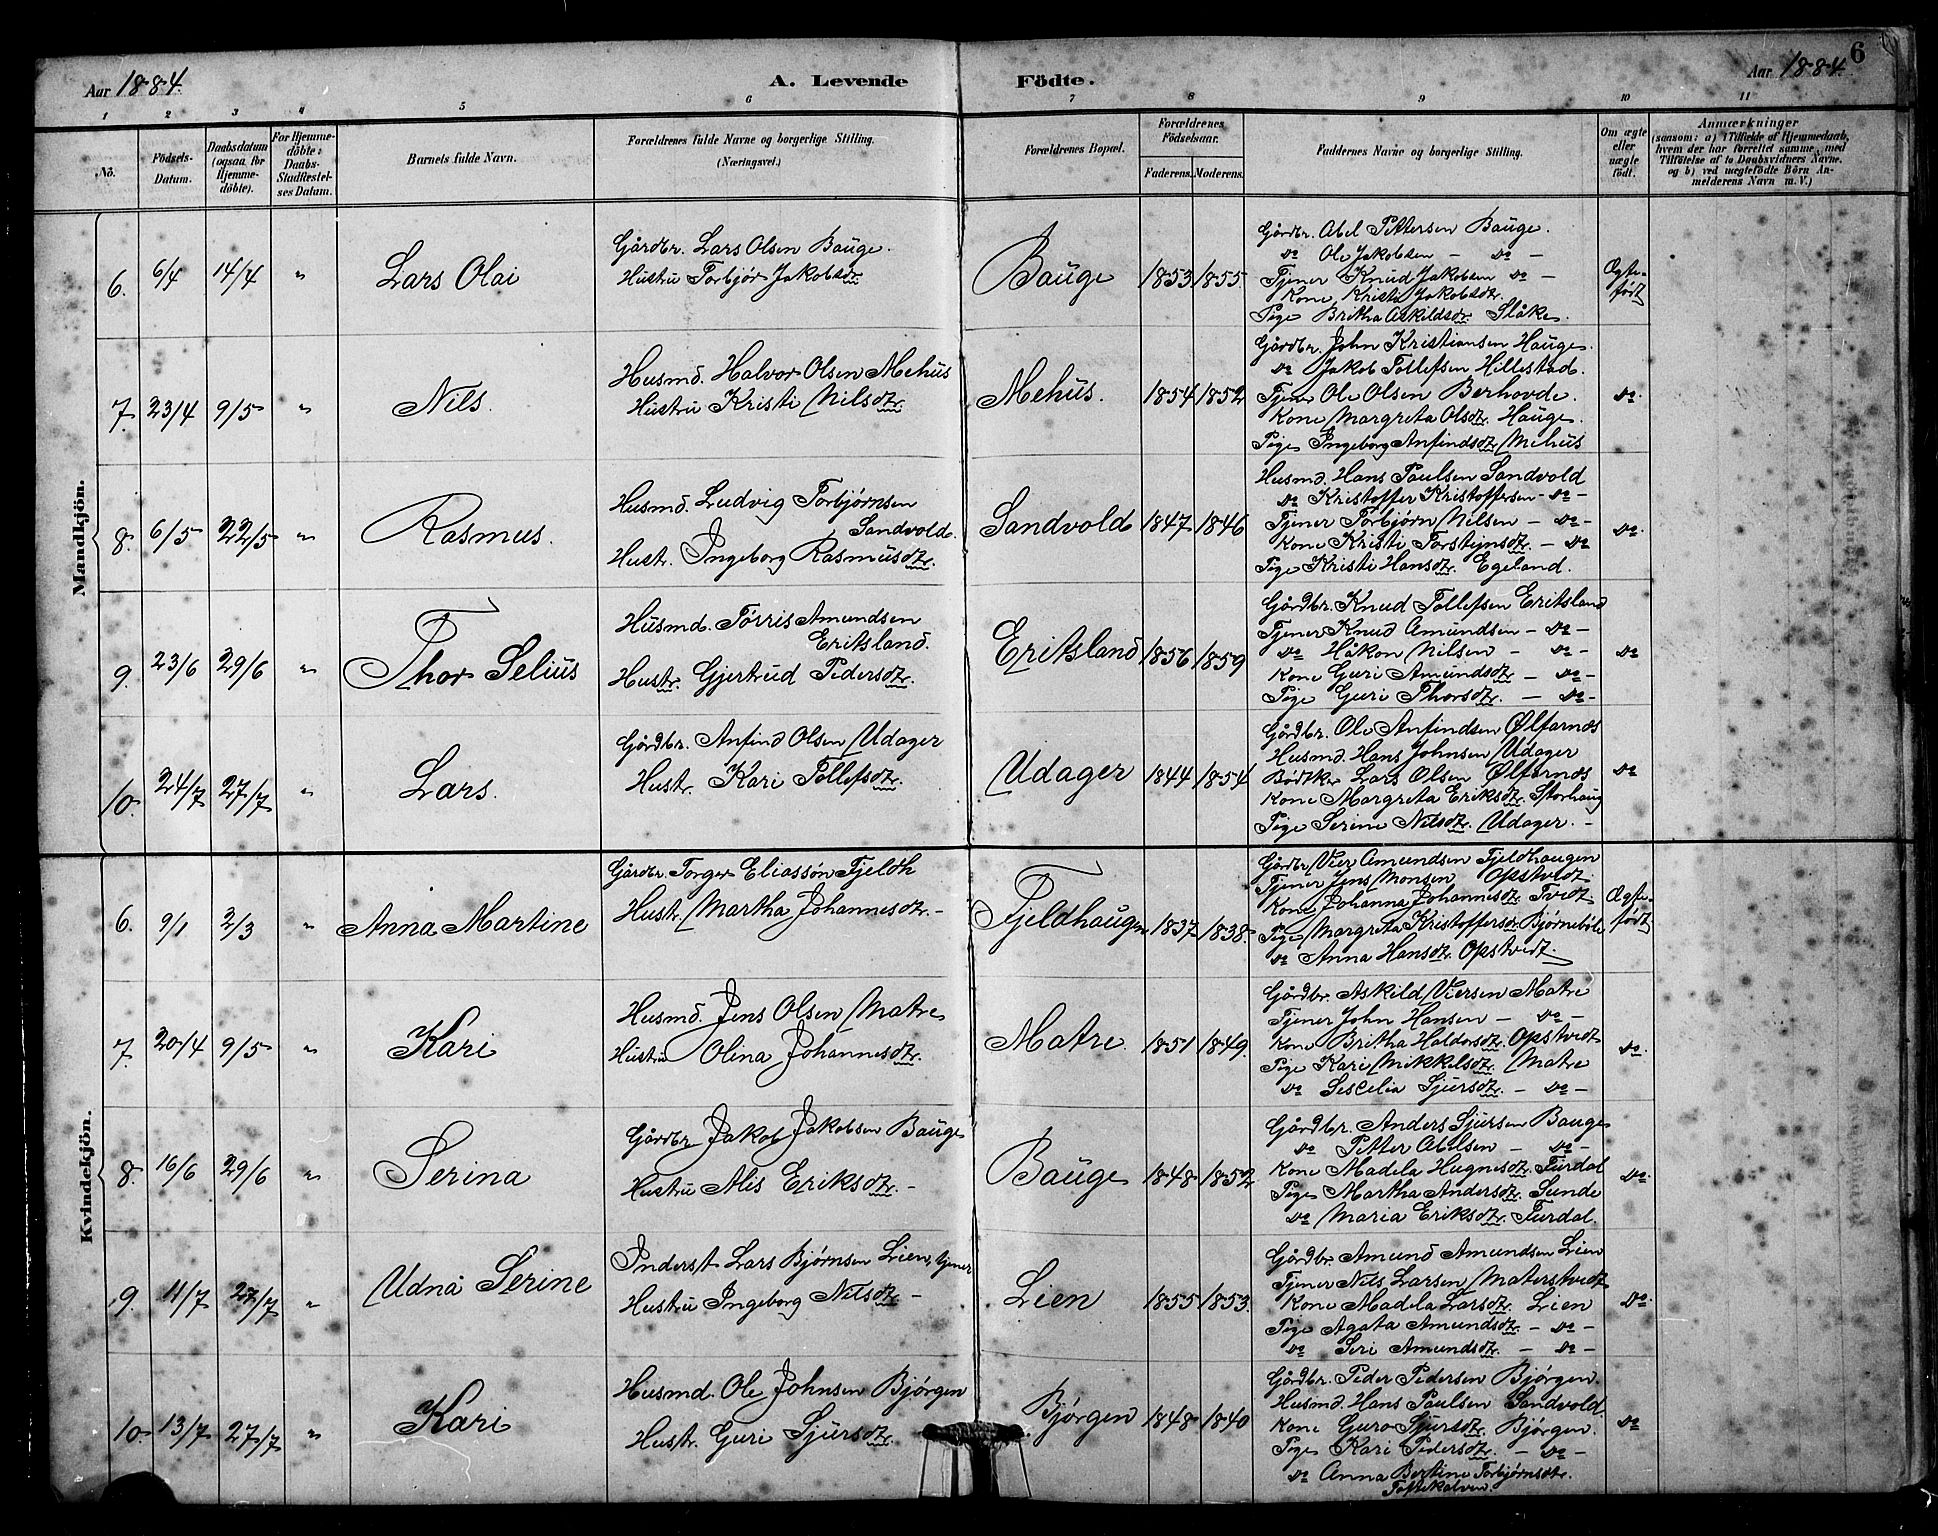 6
Aar 1884.
A. Levende Födte.
Aar 1884.
1 2 3 4 5 6 7 8 9 10 11
No.
Födsels-Datum.
Daabsdatum (ogsaa for Hjemme-döbte).
For Hjemme-döbte: Daabs-Stadfestel-ses Datum.
Barnets fulde Navn.
Forældrenes fulde Navne og borgerlige Stilling.
(Næringsvei.)
Forældrenes Bopæl.
Forældrenes Födselsaar.
Faderens. Moderens.
Faddernes Navne og borgerlige Stilling.
Om ægte eller uægte födt.
Anmærkninger
(saasom: a) i Tilfælde af Hjemmedaab, hvem der har forrettet samme, med Tilföielse af to Daabsvidners Navne, og b) ved uægtefödte Börn An-melderens Navn m. V.)
Mandkjön.
6. 6/4 14/4 " Lars Olai
Gårdbr. Lars Olsen Bauge.
Hustru Torbjør Jakobsdtr
Bauge 1853 1855
Gårdbr. Abel Pettersen Bauge.
do Ole Jakobsen – do –
Tjener Knud Jakobsen do –
Kone Kristi Jakobsdtr.
Pige Britha Askildsdtr. Slåke.
Ægte-født
7. 23/4 9/5 " Nils.
Husmd. Halvor Olsen Mehus
Hustru Kristi Nilsdtr.
Mehus. 1854 1852
Gårdbr. John Kristiansen Hauge.
do Jakob Tollefsen Hillestad.
Tjener Ole Olsen Berhovde.
Kone Margreta Olsdtr. Hauge.
Pige Ingeborg Anfindsdtr. Mehus
do.
8. 6/5 22/5 " Rasmus.
Husmd. Ludvig Torbjørnsen
Sandvold.
Hustr. Ingeborg Rasmusdtr.
Sandvold 1847 1846
Husmd. Hans Paulsen Sandvold
do Kristoffer Kristoffersen – do –
Tjener Torbjørn Nilsen – do –
Kone Kristi Torsteinsdtr. – do
Pige Kristi Hansdtr. Egeland.
do.
9. 23/6 29/6 " Thor Selius
Husmd. Tørris Amundsen
Eritsland.
Hustr. Gjertrud Pedersdtr.
Eritsland 1856 1859
Gårdbr. Knud Tollefsen Eritsland
Tjener Knud Amundsen – do –
do Håkon Nilsen – do –
Kone Guri Amundsdtr – do –
Pige Guri Thorsdtr. – do –
do
10. 24/7 27/7 " Lars.
Gårdbr. Anfind Olsen Udager
Hustr. Kari Tollefsdtr.
Udager 1844 1854
Gårdbr. Ole Anfindsen Ølfarnes
Husmd. Hans Johnsen Udager
Bødker Lars Olsen Ølfarnes
Kone Margreta Eriksdtr. Storhaug
Pige Serine Nilsdtr. Udager. –
do
Kvindekjön.
6. 9/1 2/3 " Anna Martine
Gårdbr. Torger Eliassøn Fjeldh
Hustr. Martha Johannesdtr. –
Fjeldhaugn 1837 1838.
Gårdbr. Vier Amundsen Fjeldhaugen
Tjener Jens Monsen Opstvedt
Kone Johanna Johannesdtr. Tvedt
Pige Margreta Kristoffersdtr. Bjørnebøle
do Anna Hansdtr. Opstvedt.
Ægte-født
7. 20/4 9/5 " Kari
Husmd. Jens Olsen Matre
Hustru Olina Johannesdtr.
Matre. 1851 1849.
Gårdbr. Askild Viersen Matre
Tjener John Hansen – do –
Kone Britha Haldorsdtr. Opstvedt
Pige Kari Mikkelsdtr. Matre
do Sescelia Sjursdtr. – do –
do.
8. 16/6 29/6 " Serina
Gårdbr Jakob Jakobsen Bauge
Hustru Alis Eriksdtr. –
Bauge 1848 1852
Gårdbr. Anders Sjursen Bauge
do Petter Abelsen – do –
Kone Madela Hugnesdtr. Furdal
Pige Martha Andersdtr. Sunde
do Maria Eriksdtr. Furdal.
do.
9. 11/7 27/7 " Udnå Serine
Inderst Lars Bjørnsen Lien, tjener
Hustru Ingeborg Nilsdtr –
Lien 1855 1853.
Gårdbr Amund Amundsen Lien
Tjener Nils Larsen Materstvedt
Kone Madela Larsdtr. Lien
Pige Agata Amundsdtr. – do –
do Seri Amundsdtr. – do –
do.
10. 13/7 27/7 " Kari
Husmd. Ole Johnsen Bjørgen
Hustr. Guri Sjursdtr.
Bjørgen 1848 1840
Gårdbr. Peder Pedersen Bjørgen.
Husmd. Hans Paulsen Sandvold.
Kone Guro Sjursdtr. Bjørgen.
Pige Kari Pedersdtr. – do –
do Anna Bertine Torbjørnsdtr.
do